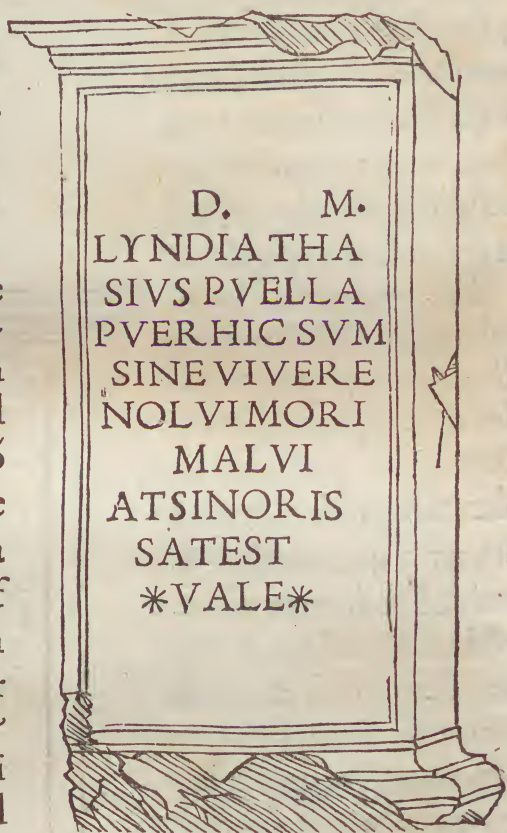 D. M.
LYNDIA THA
SIVS PVELLA
PVER HIC SVM
SINE VIVERE
NOLVI MORI
MALVI
AT SI NORIS
SAT EST
*VALE*